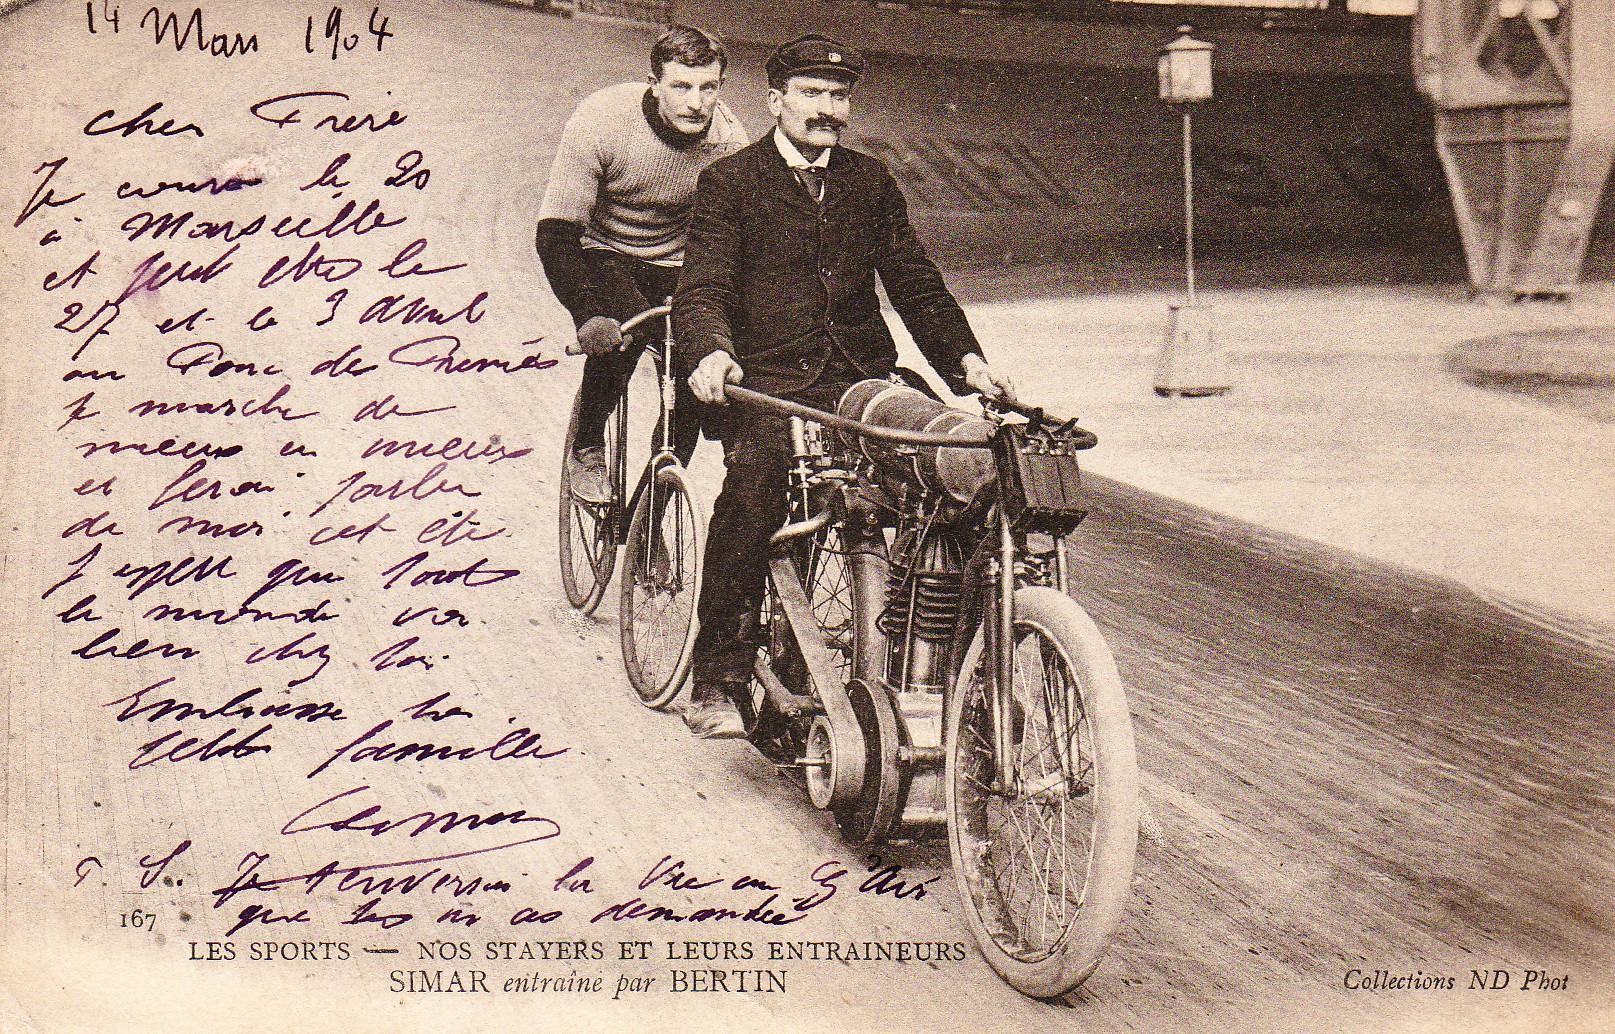 14 Mars 1904
cher Frère
Je cours le 20
à Marseille
et peut etre le
27 et le 3 avril
au Parc des Princes
je marche de
mieux en mieux
et ferai parler
de moi cet été
J'espere que tout
le monde va
bien chez toi.
Embrasse ta
petite famille
P. S. Je t'enverrai la Vie au G Air
que tu m as demandée
167
LES SPORTS — NOS STAYERS ET LEURS ENTRAINEURS
SIMAR entraîné par BERTIN
Collections ND Phot